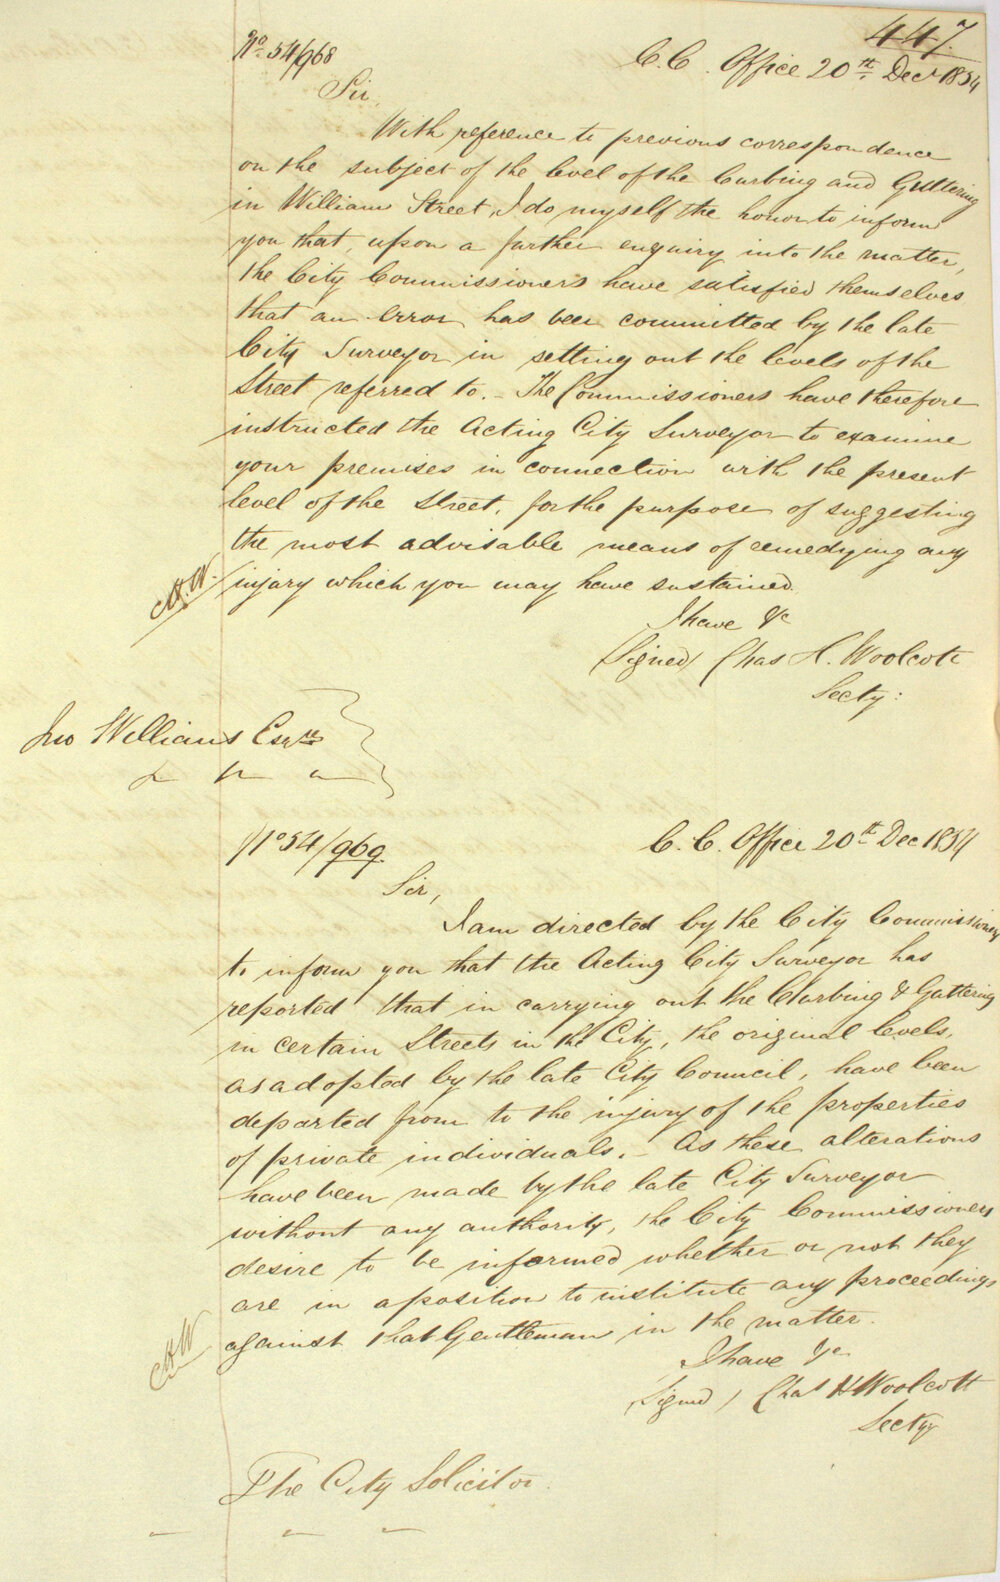 447.
No 54/968
C.C. Office 20th Decr 1854
Sir,
With reference to previous correspondence
on the subject of the level of the Curbing and Guttering
in William Street, I do myself the honor to inform
you that, upon a further enquiry into the matter,
the City Commissioners have satisfied themselves
that an error has been committed by the late
City Surveyor in setting out the levels of the
Street referred to. - The Commissioners have therefore
instructed the Acting City Surveyor to examine
your premises in connection with the present
level of the Street, for the purpose of suggesting
the most advisable means of remedying any
injury which you may have sustained.
C.H.W.
I have &c
(Signed) Chas H. Woolcott
Secty:
Jno Williams Esqre
No 54/969
C.C. Office 20th Dec 1854
Sir,
I am directed by the City Commissioners
to inform you that the Acting City Surveyor has
reported that in carrying out the Curbing & Guttering
in certain Streets in the City, the original levels,
as adopted by the late City Council, have been
departed from to the injury of the properties
of private individuals. - As these alterations
have been made by the late City Surveyor
without any authority, the City Commissioners
desire to be informed whether or not they
are in a position to institute any proceedings
against that Gentleman in the matter.
CHW
I have &c
Signed) Chas H Woolcott
Secty
The City Solicitor.